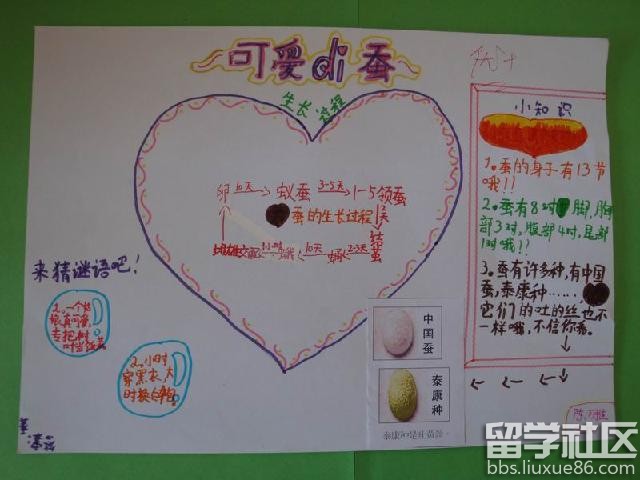 可爱di蚕
生长过程
卵 10天 蚁蚕 3-5天 1-5领蚕
蚕的生长过程
结茧
10天
小知识
1。蚕的身子有13节
哦!!
2。蚕有8对脚,胸
部3对,腹部4对,尾部
1对哦!!
3。蚕有许多种,有中国
蚕,泰康种……
它们的吐的丝也不
一样哦,不信你看。
来猜谜语吧!
2。小时
穿黑衣,大
时换白袍。
中国蚕
泰康种
留学社区
bbs.liuxue86.com